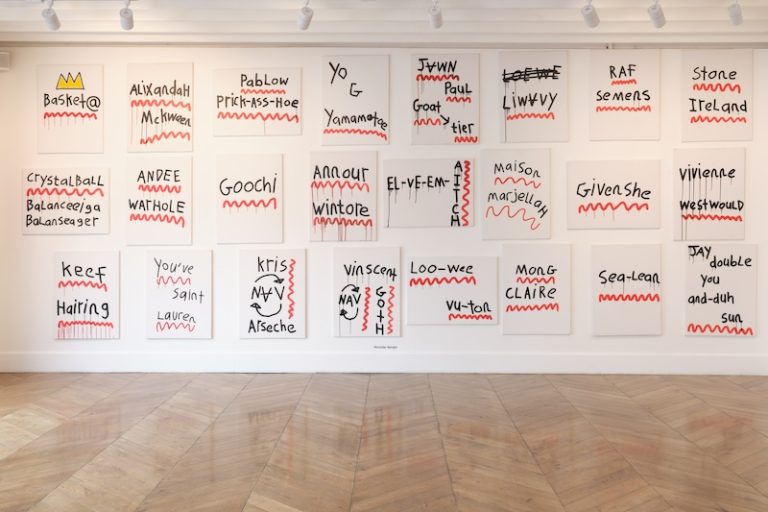 Basket@
ALiXandaH
McKween
PabLow
PRiCK-ASS-Hoe
Yo
G
Yamamotoe
J∀WN
PauL
Goat
tier
LOEWE
LiW∀VY
RAF
Semens
Stone
IReland
CRYstaLBaLL
BaLanceeiga
BaLanseager
ANDEE
WARHOLE
GOOCHi
Annour
Wintore
EL-VE-EM-
AITCH
Maison
marjeLLaH
Givenshe
ViVienne
WestWouLD
Keef
HaiRing
You've
Saint
LauRen
kRis
N∀V
ARseche
VinScent
NAV
GOtH
Loo-wee
Vu-ton
MonG
CLAIRE
Sea-Lean
JAY
double
you
and-duh
sun